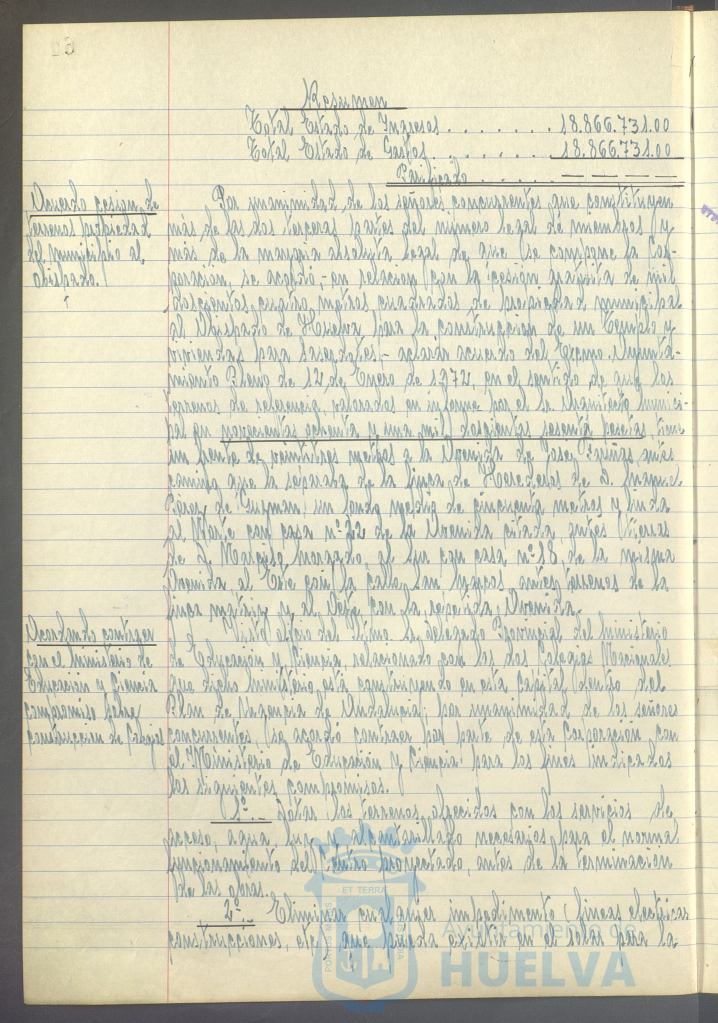 Resumen
Total Estado de Ingresos . . . . . . . . 18.866.731.00
Total Estado de Gastos . . . . . . . 18.866.731.00
Acuerdo cesion de
terrenos propiedad
del municipio al
Obispado.
Por unanimidad de los señores concurrentes que constituyen
más de las dos terceras partes del número legal de miembros y
más de la mayoría absoluta legal de que se compone la Cor-
poración, se acordó, - en relación con la cesión gratuita de mil
doscientos cuatro metros cuadrados de propiedad municipal
al Obispado de Huelva para la construcción de un Templo y
viviendas para Sacerdotes, - aclarar acuerdo del Excmo. Ayunta-
miento Pleno de 12 de Enero de 1972, en el sentido de que los
terrenos de referencia, valorados en informe por el Sr. Arquitecto Munici-
pal en novecientas ochenta y una mil doscientas sesenta pesetas, tiene
un frente de veintitres metros a la Avenida de Jose Fariñas, antes
camino que la separaba de la finca de Herederos de D.
Perez de Guzman; un fondo medio de cincuenta metros y linda
al Norte con casa nº 22 de la Avenida citada, antes tierras
de D. Narciso Morgado, al Sur con casa nº 18 de la misma
Avenida al Este con la calle San Marcos antes terrenos de la
finca matriz y al Oeste con la repetida Avenida.
Acordando contraer
con el Ministerio de
Educación y Ciencia
compromiso sobre
construcción de Colegios
Visto oficio del Iltmo. Sr. Delegado Provincial del Ministerio
de Educación y Ciencia, relacionado con los dos Colegios Nacionales
que dicho Ministerio está construyendo en esta Capital dentro del
Plan de Urgencia de Andalucía; por unanimidad de los señores
concurrentes, se acordó contraer por parte de esta Corporación con
el Ministerio de Educación y Ciencia para los fines indicados
los siguientes compromisos.
1º.- Dotar los terrenos ofrecidos con los servicios de
acceso, agua, luz y alcantarillado necesarios para el normal
funcionamiento del Centro proyectado, antes de la terminación
de las obras.
2º.- Eliminar cualquier impedimento (líneas eléctricas
construcciones, etc.) que pueda existir en el solar para la
ET TERRAE
Ayuntamiento de
HUELVA